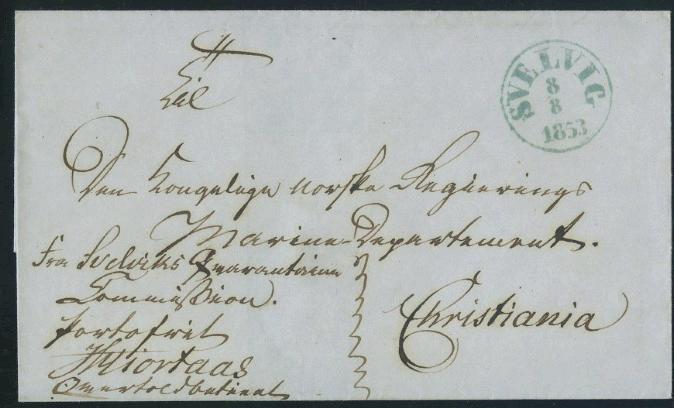 Til
SVELVIG
8
8
1853
Den Kongelige norske Regierings
Marine-Departement.
Fra Svelviks Quarantaine
Commission.
Christiania
portofrit
Hjortaas
Overtoldbetient